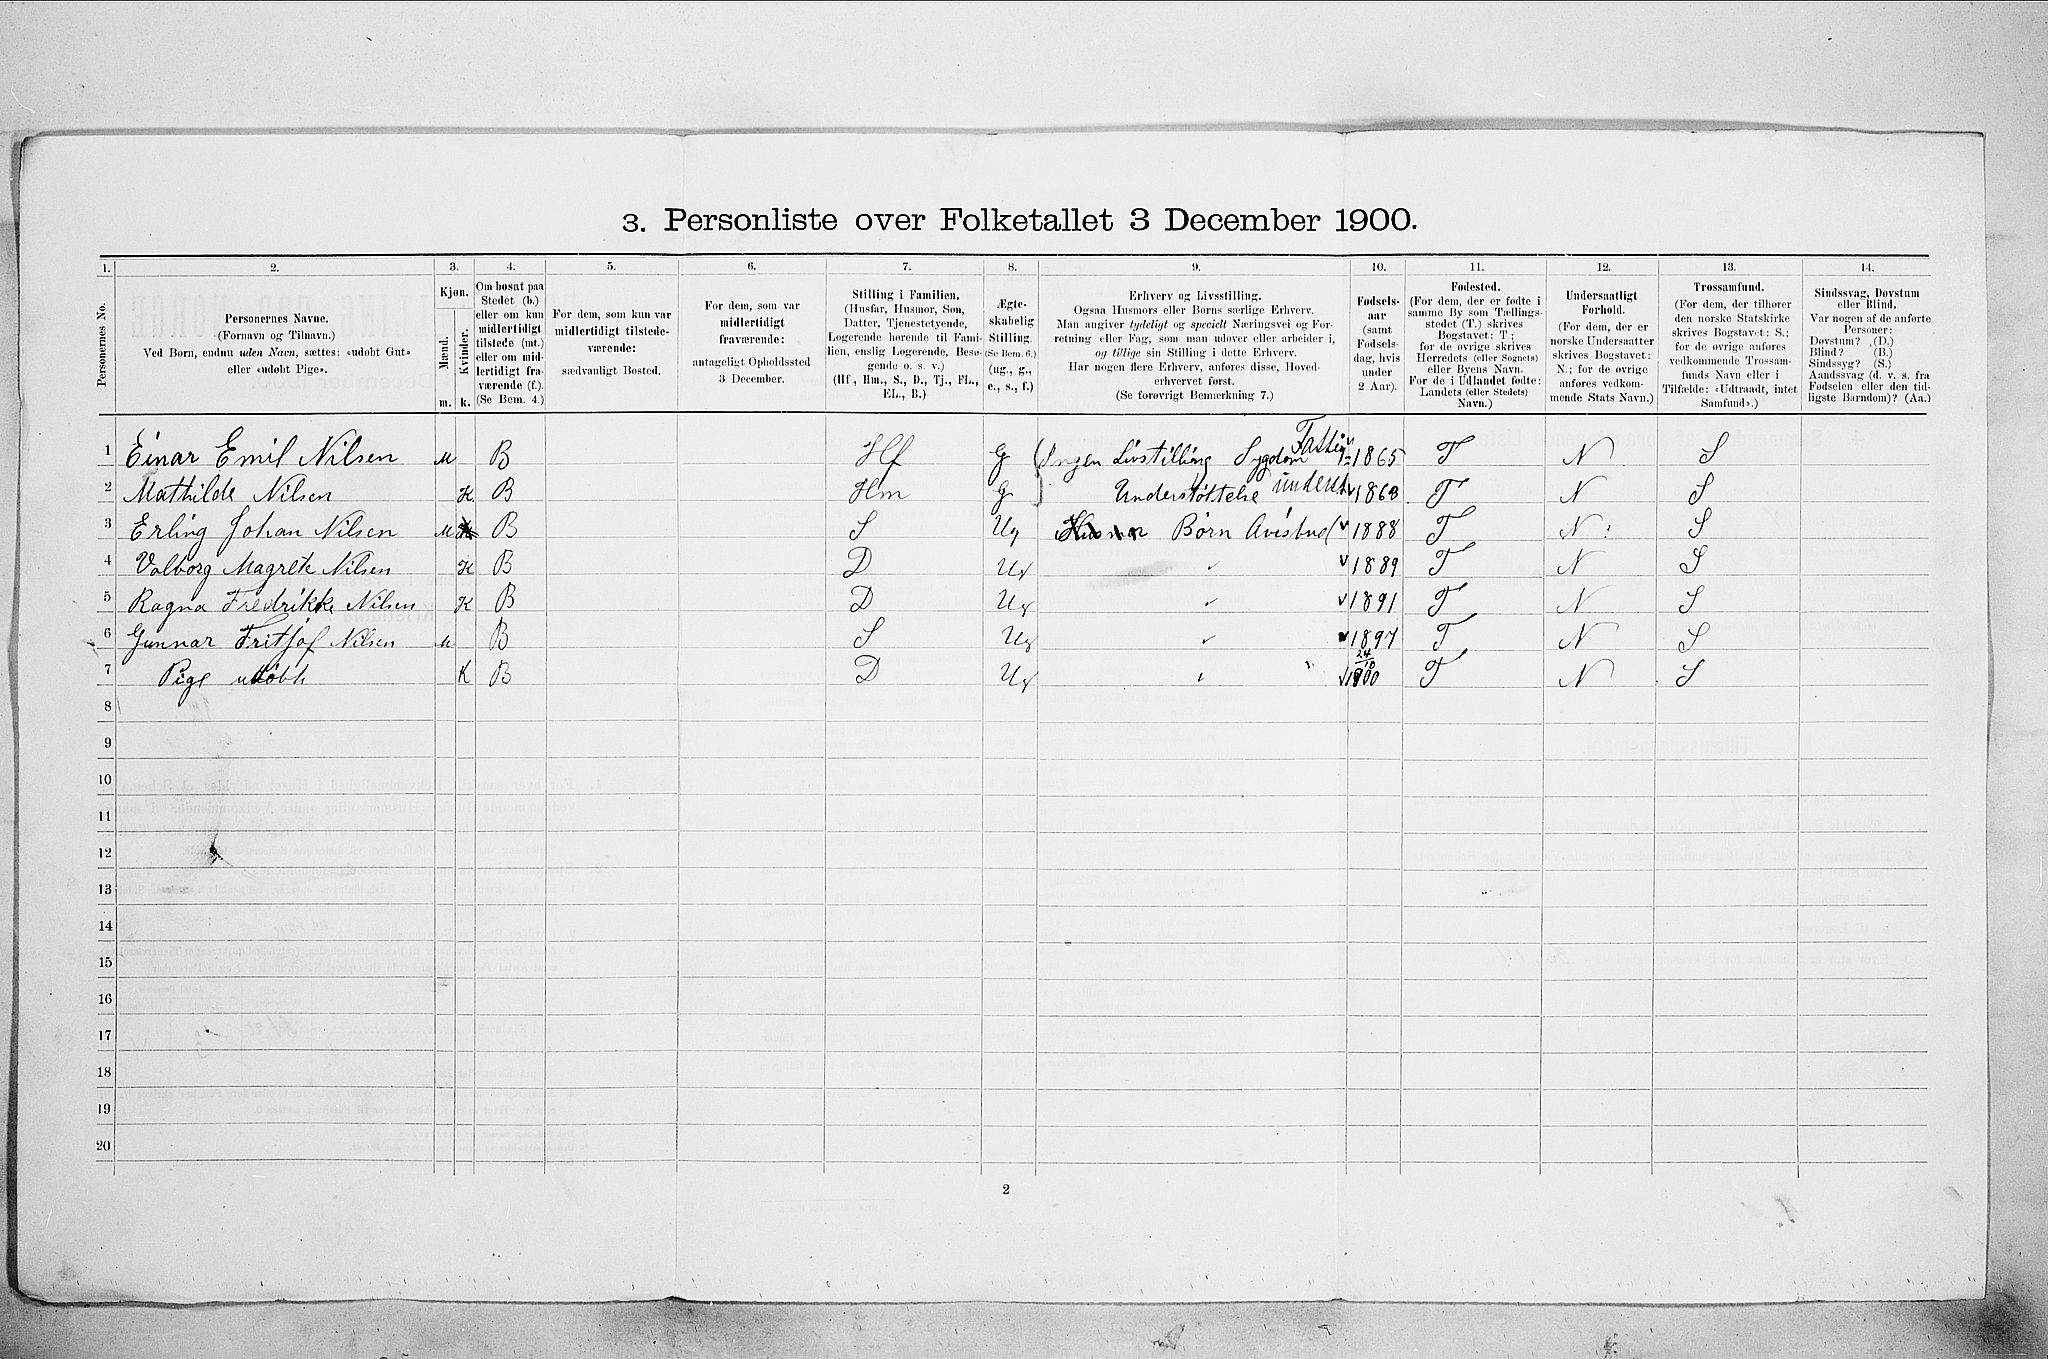 3. Personliste over Folketallet 3 December 1900.
1. 2. 3. 4. 5. 6. 7. 8. 9. 10. 11. 12. 13. 14.
Personernes No.
Personernes Navne.
(Fornavn og Tilnavn.)
Ved Børn, endnu uden Navn, sættes: «udøbt Gut»
eller «udøbt Pige».
Kjøn.
Mænd.
Kvinder.
m. k.
Om bosat paa
Stedet (b.)
eller om kun
midlertidigt
tilstede (mt.)
eller om mid-
lertidigt fra-
værende (f.)
(Se Bem. 4.)
For dem, som kun var
midlertidigt tilstede-
værende:
sædvanligt Bosted.
For dem, som var
midlertidigt
fraværende:
antageligt Opholdssted
3 December.
Stilling i Familien.
(Husfar, Husmor, Søn,
Datter, Tjenestetyende,
Logerende hørende til Fami-
lien, enslig Logerende, Besø-
gende o. s. v.)
(Hf, Hm., S., D., Tj., FL.,
EL., B.)
Ægte-
skabelig
Stilling.
(Se Bem. 6.)
(ug., g.,
e., s., f.)
Erhverv og Livsstilling.
Ogsaa Husmors eller Børns særlige Erhverv.
Man angiver tydeligt og specielt Næringsvei og For-
retning eller Fag, som man udover eller arbeider i,
og tillige sin Stilling i dette Erhverv.
Har nogen flere Erhverv, anføres disse, Hoved-
erhvervet først.
(Se forøvrigt Bemærkning 7.)
Fødsels-
aar
(samt
Fødsels-
dag, hvis
under
2 Aar).
Fødested.
(For dem, der er fødte i
samme By som Tællings-
stedet (T.) skrives
Bogstavet: T;
for de øvrige skrives
Herredets (eller Sognets)
eller Byens Navn.
For de i Udlandet fødte:
Landets (eller Stedets)
Navn.)
Undersaatligt
Forhold.
(For dem, der er
norske Undersaatter
skrives Bogstavet:
N.; for de øvrige
anføres vedkom-
mende Stats Navn.)
Trossamfund.
(For dem, der tilhører
den norske Statskirke
skrives Bogstavet: S.;
for de øvrige anføres
vedkommende Trossam-
funds Navn eller i
Tilfælde: «Udtraadt, intet
Samfund».)
Sindssvag, Døvstum
eller Blind.
Var nogen af de anførte
Personer:
Døvstum? (D.)
Blind? (B.)
Sindssyg? (S.)
Aandssvag (d. v. s. fra
Fødselen eller den tid-
ligste Barndom)? (Aa.)
1 Einar Emil Nilsen M B Hf G Ingen Livstilling Sygdom Fattig 1865 T N S
2 Mathilde Nilsen K B Hm G Understøttelse underst. 1863 T N S
3 Erling Johan Nilsen M B S Ug Børn Avisbud 1888 T N S
4 Valborg Magrete Nilsen K B D Ug 1889 T N S
5 Ragna Fredrikke Nilsen K B D Ug 1891 T N S
6 Gunnar Fritjof Nilsen M B S Ug 1897 T N S
7 Pige udøbt K B D Ug 24/10 1900 T N S
8
9
10
11
12
13
14
15
16
17
18
19
20
2